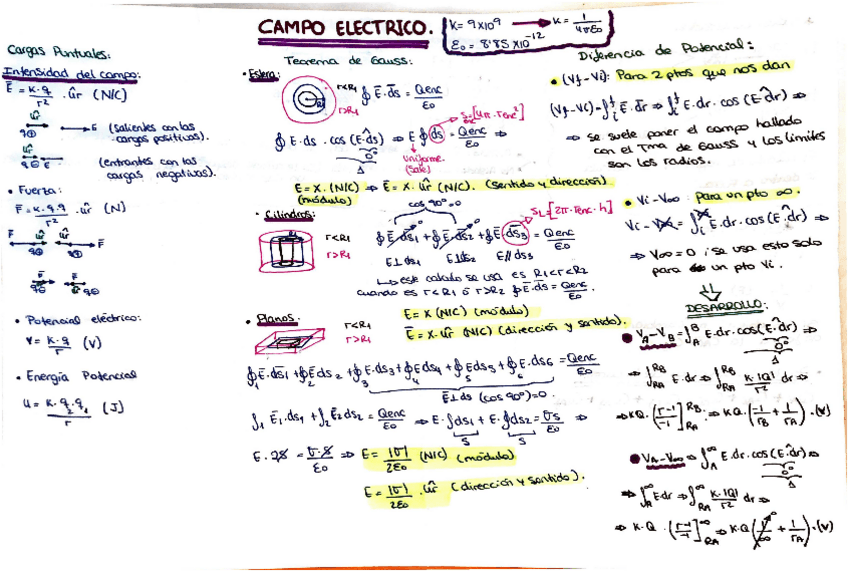 CAMPO ELECTRICO.
K = 9x10⁹ → K = 1/4πε₀
ε₀ = 8'85 x10⁻¹²
Cargas Puntuales:
Intensidad del campo:
E̅ = K·q/r² · ûr (N/C)
ûr
q⊕ → E (salientes con las cargas positivas).
ûr
q⊖ E (entrantes con las cargas negativas).
• Fuerza:
F̅ = K·q·q/r² · ûr (N)
F ûr ûr F
q⊕ q⊕
F F
q⊖ q⊖
• Potencial eléctrico:
V = K·q/r (V)
• Energía Potencial
U = K·q₂q₁/r (J)
Teorema de Gauss:
• Esfera:
r<R₁
r>R₁
∮E̅·ds̅ = Qenc/ε₀
S=[4π·renc²]
∮E·ds·cos(E^ds) ⇒ E∮ds = Qenc/ε₀ ⇒
0º
1
uniforme.
(sale)
E = X (N/C) ⇒ E̅ = X·ûr (N/C). (sentido y dirección)
(módulo)
• Cilindros:
r<R₁
r>R₁
cos 90º=0
SL=[2π·renc·h]
∮E̅·ds̅₁ + ∮E̅·ds̅₂ + ∮E̅·ds̅₃ = Qenc/ε₀
E⊥ds₁ E⊥ds₂ E//ds₃
↳ este calculo se usa es R₁<r<R₂
cuando es r<R₁ ó r>R₂ ∮E·ds = Qenc/ε₀.
E = X (N/C) (módulo)
E̅ = X·ûr (N/C) (dirección y sentido).
• Planos:
r<R₁
r>R₁
∮₁E̅·ds̅₁ + ∮₂E·ds₂ + ∮₃E·ds₃ + ∮₄E·ds₄ + ∮₅E·ds₅ + ∮₆E·ds₆ = Qenc/ε₀
E̅⊥ds (cos 90º)=0.
∫₁E₁·ds₁ + ∫₂E₂ds₂ = Qenc/ε₀ ⇒ E·∫ds₁ + E·∫ds₂ = σs/ε₀ ⇒
S S
E·2S = σ·S/ε₀ ⇒ E = |σ|/2ε₀ (N/C) (módulo)
E = |σ|/2ε₀ · ûr (dirección y sentido).
Diferencia de Potencial:
• (Vf-Vi): Para 2 ptos que nos dan
(Vf-Vi) = ∫E̅·dr̅ ⇒ ∫E·dr·cos(E^dr) ⇒
⇒ se suele poner el campo hallado
con el Tma de Gauss y los límites
son los radios.
• Vi-V∞: Para un pto ∞.
Vi - V∞ = ∫E·dr·cos(E^dr) ⇒
⇒ V∞ = 0 ; se usa esto solo
para un pto Vi.
DESARROLLO:
• VA-VB = ∫E·dr·cos(E^dr) ⇒
0º
1
⇒ ∫E·dr ⇒ ∫K·|Q|/r² dr ⇒
⇒ KQ·(r⁻¹/-1) ⇒ KQ·(-1/rB + 1/rA)·(V)
• VA-V∞ ⇒ ∫E·dr·cos(E^dr) ⇒
0º
1
⇒ ∫E·dr ⇒ ∫K·|Q|/r² dr ⇒
⇒ K·Q·(r⁻¹/-1) ⇒ K·Q(1/∞ + 1/rA)·(V)